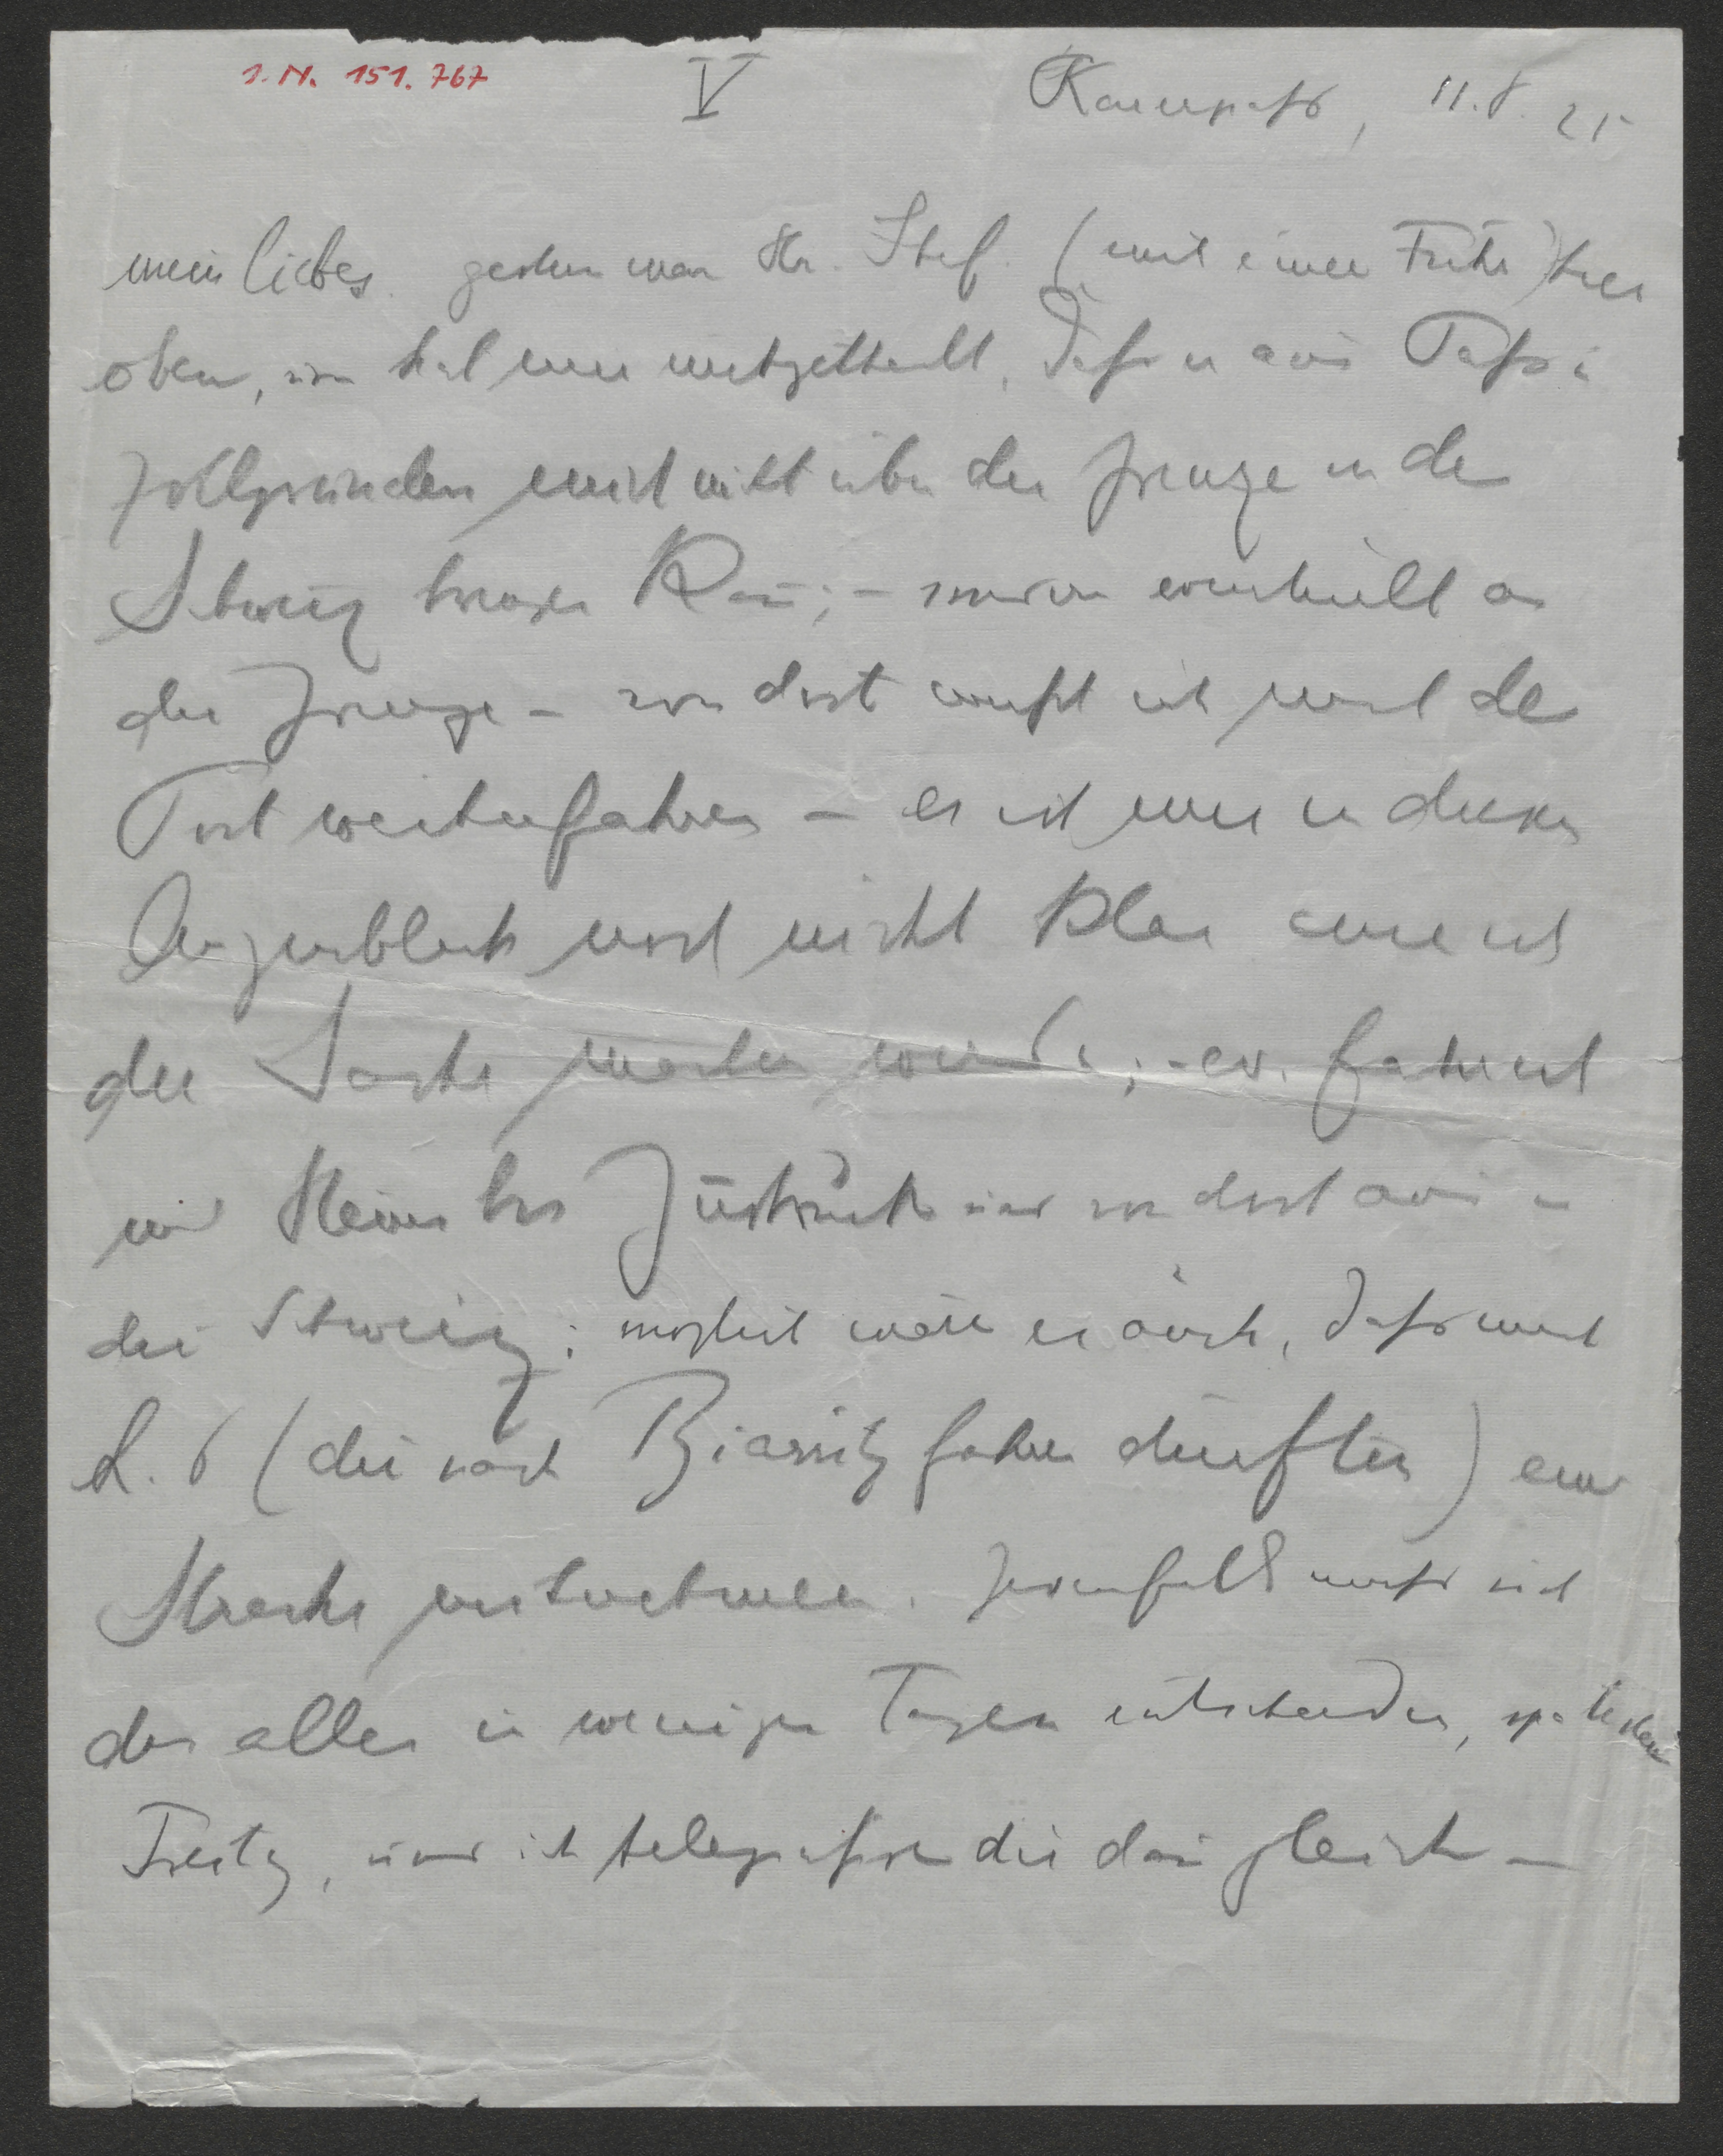 I. N. 151.767
V
Karerpass, 11.8.25
mein liebes. gestern war Hr. Stef. (mit einer Fuhre) hier
oben, und hat mir mitgetheilt, dass er aus Pass u
Zollgründen mich nicht über die Grenze in die
Schweiz bringen kann; – sondern eventuell an
die Grenze – von dort müsst ich mit der
Post weiterfahren – es ist mir in diesem
Augenblick noch nicht klar wie ich
die Sache machen werde; – ev. fahre ich
mit Heini bis Innsbruck und von dort aus in
die Schweiz; möglich wäre es auch, dass mich
(die nach Biarritz fahren dürften) eine
Strecke mitnehmen. Jedenfalls muss sich
das alles in wenigen Tagen entscheiden, spätestens
Freitag, und ich telegrafire dir dann gleich –